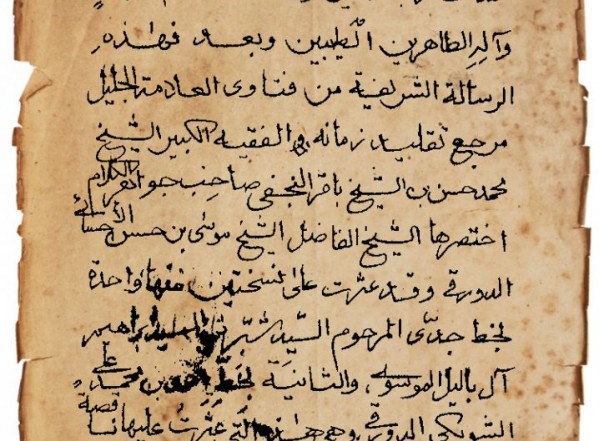 وآله الطاهرين الطيبين وبعد فهذه
الرسالة الشريفة من فتاوى العلامة الجليل
مرجع تقليد زمانه في الفقيه الكبير الشيخ
محمد حسن بن الشيخ باقر النجفي صاحب جواهر الكلام
اختصرها الشيخ الفاضل الشيخ موسى بن حسن الأحسائي
الدورقي وقد عثرت على نسختين منها واحدة
بخط جدي المرحوم السيد شبر بن السيد ابراهيم
آل باليل الموسوي والثانية بخط بن محمد علي
الشويكي الدورقي وهي هذه التي عثرت عليها ناقصة